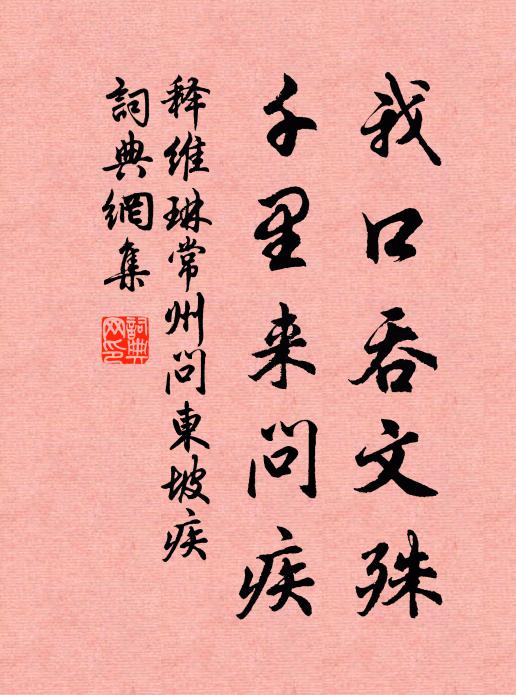 我口吞文殊
千里来问疾
释维琳常州问東坡疾
詞典網集
詞典网印